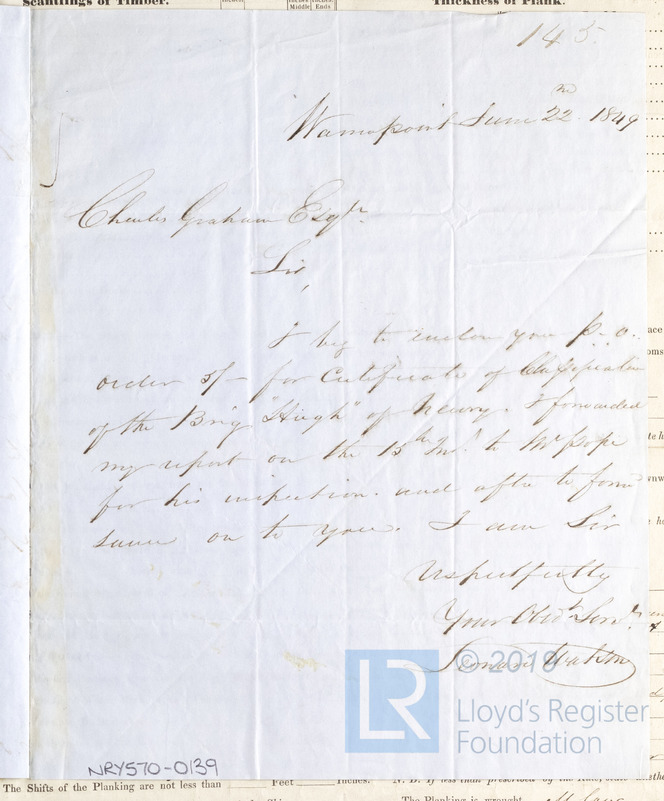 Scantlings of Timber.
Inches
Middle Ends
Thickness of Plank.
145
Warrenpoint June 22nd 1849
Charles Graham Esqr.
Sir,
I beg to enclose you P. O.
order 5/- for Certificate of Classification
of the Brig "Hugh" of Newry. I forwarded
my report on the 15th Inst. to Mr Pope
for his inspection. and after to forwd
same on to you. I am Sir
respectfully
Your Obdt Servt.
Leonard Watson
© 2019
LR
Lloyd's Register
Foundation
NRY570-0139
The Shifts of the Planking are not less than Feet Inches.
N. B. If less than prescribed by the Rule, state
The Planking is wrought